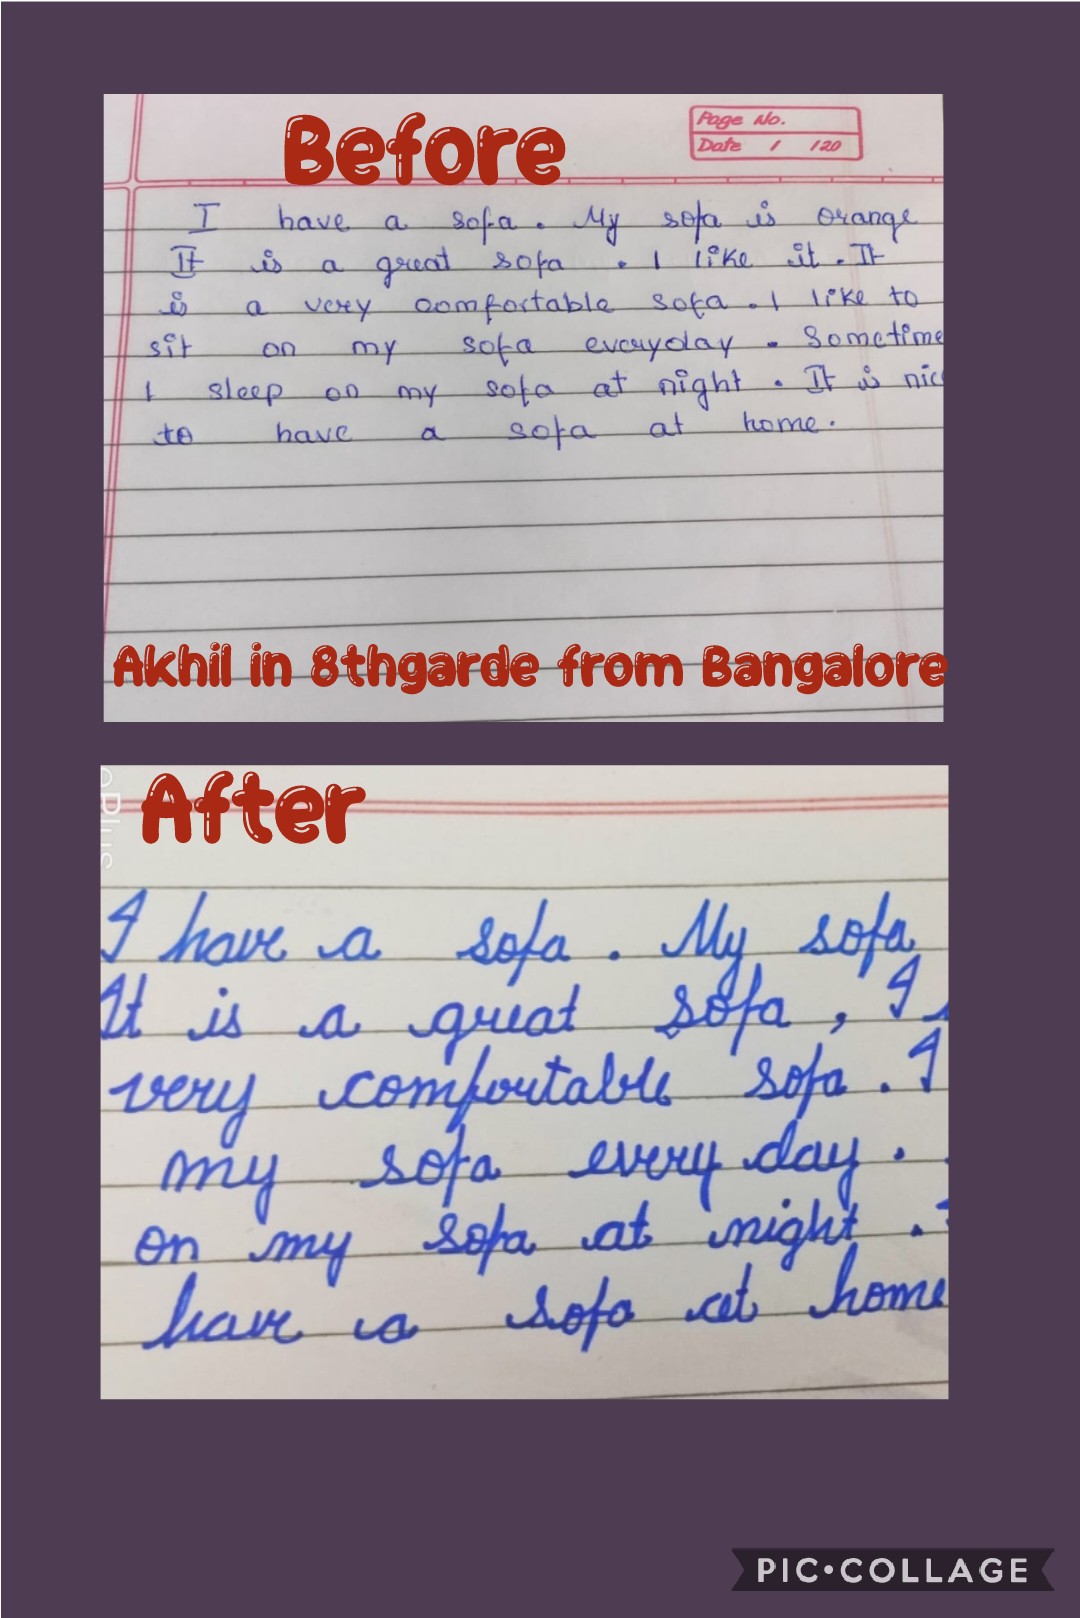 Before
Page No.
Date / /20
I have a sofa. My sofa is orange
It is a great sofa . I like it. It
is a very comfortable sofa. I like to
sit on my sofa everyday . Sometime
I sleep on my sofa at night . It is nic
to have a sofa at home.
Akhil in 8thgarde from Bangalore
After
I have a sofa . My sofa
It is a great sofa , I
very comfortable sofa . I
my sofa every day .
on my sofa at night .
have a sofa at home
PIC•COLLAGE